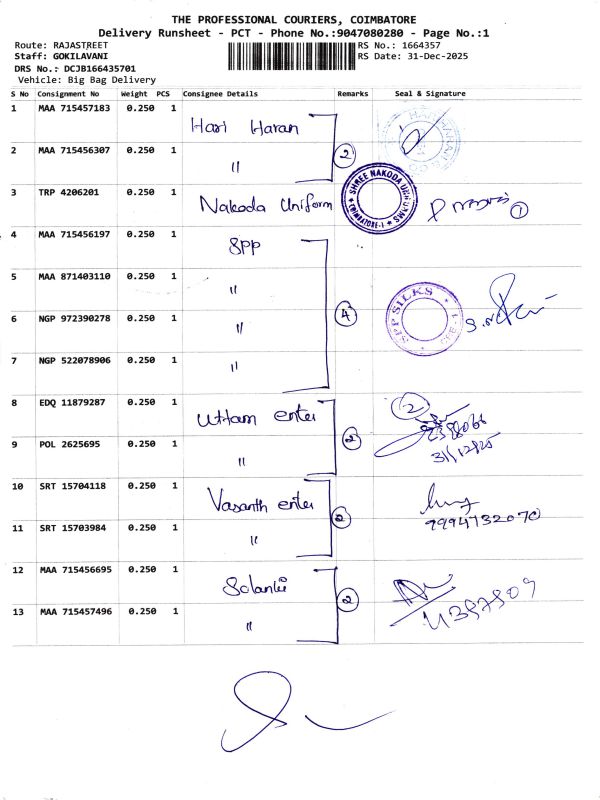 THE PROFESSIONAL COURIERS, COIMBATORE
Delivery Runsheet - PCT - Phone No.:9047080280 - Page No.:1
Route: RAJASTREET RS No.: 1664357
Staff: GOKILAVANI RS Date: 31-Dec-2025
DRS No.: DCJB166435701
Vehicle: Big Bag Delivery
S No Consignment No Weight PCS Consignee Details Remarks Seal & Signature
1 MAA 715457183 0.250 1 Hari Haran
2 MAA 715456307 0.250 1 " 2
3 TRP 4206201 0.250 1 Nakoda Uniform SHREE NAKODA UNIFORMS COIMBATORE-1 1
4 MAA 715456197 0.250 1 SPP
5 MAA 871403110 0.250 1 "
6 NGP 972390278 0.250 1 " 4 SPP SILKS CBE-1
7 NGP 522078906 0.250 1 "
8 EDQ 11879287 0.250 1 Uttam enter 2
9 POL 2625695 0.250 1 " 2 31/12/25
10 SRT 15704118 0.250 1 Vasanth enter
11 SRT 15703984 0.250 1 " 2 9994732070
12 MAA 715456695 0.250 1 Solanki
13 MAA 715457496 0.250 1 " 2